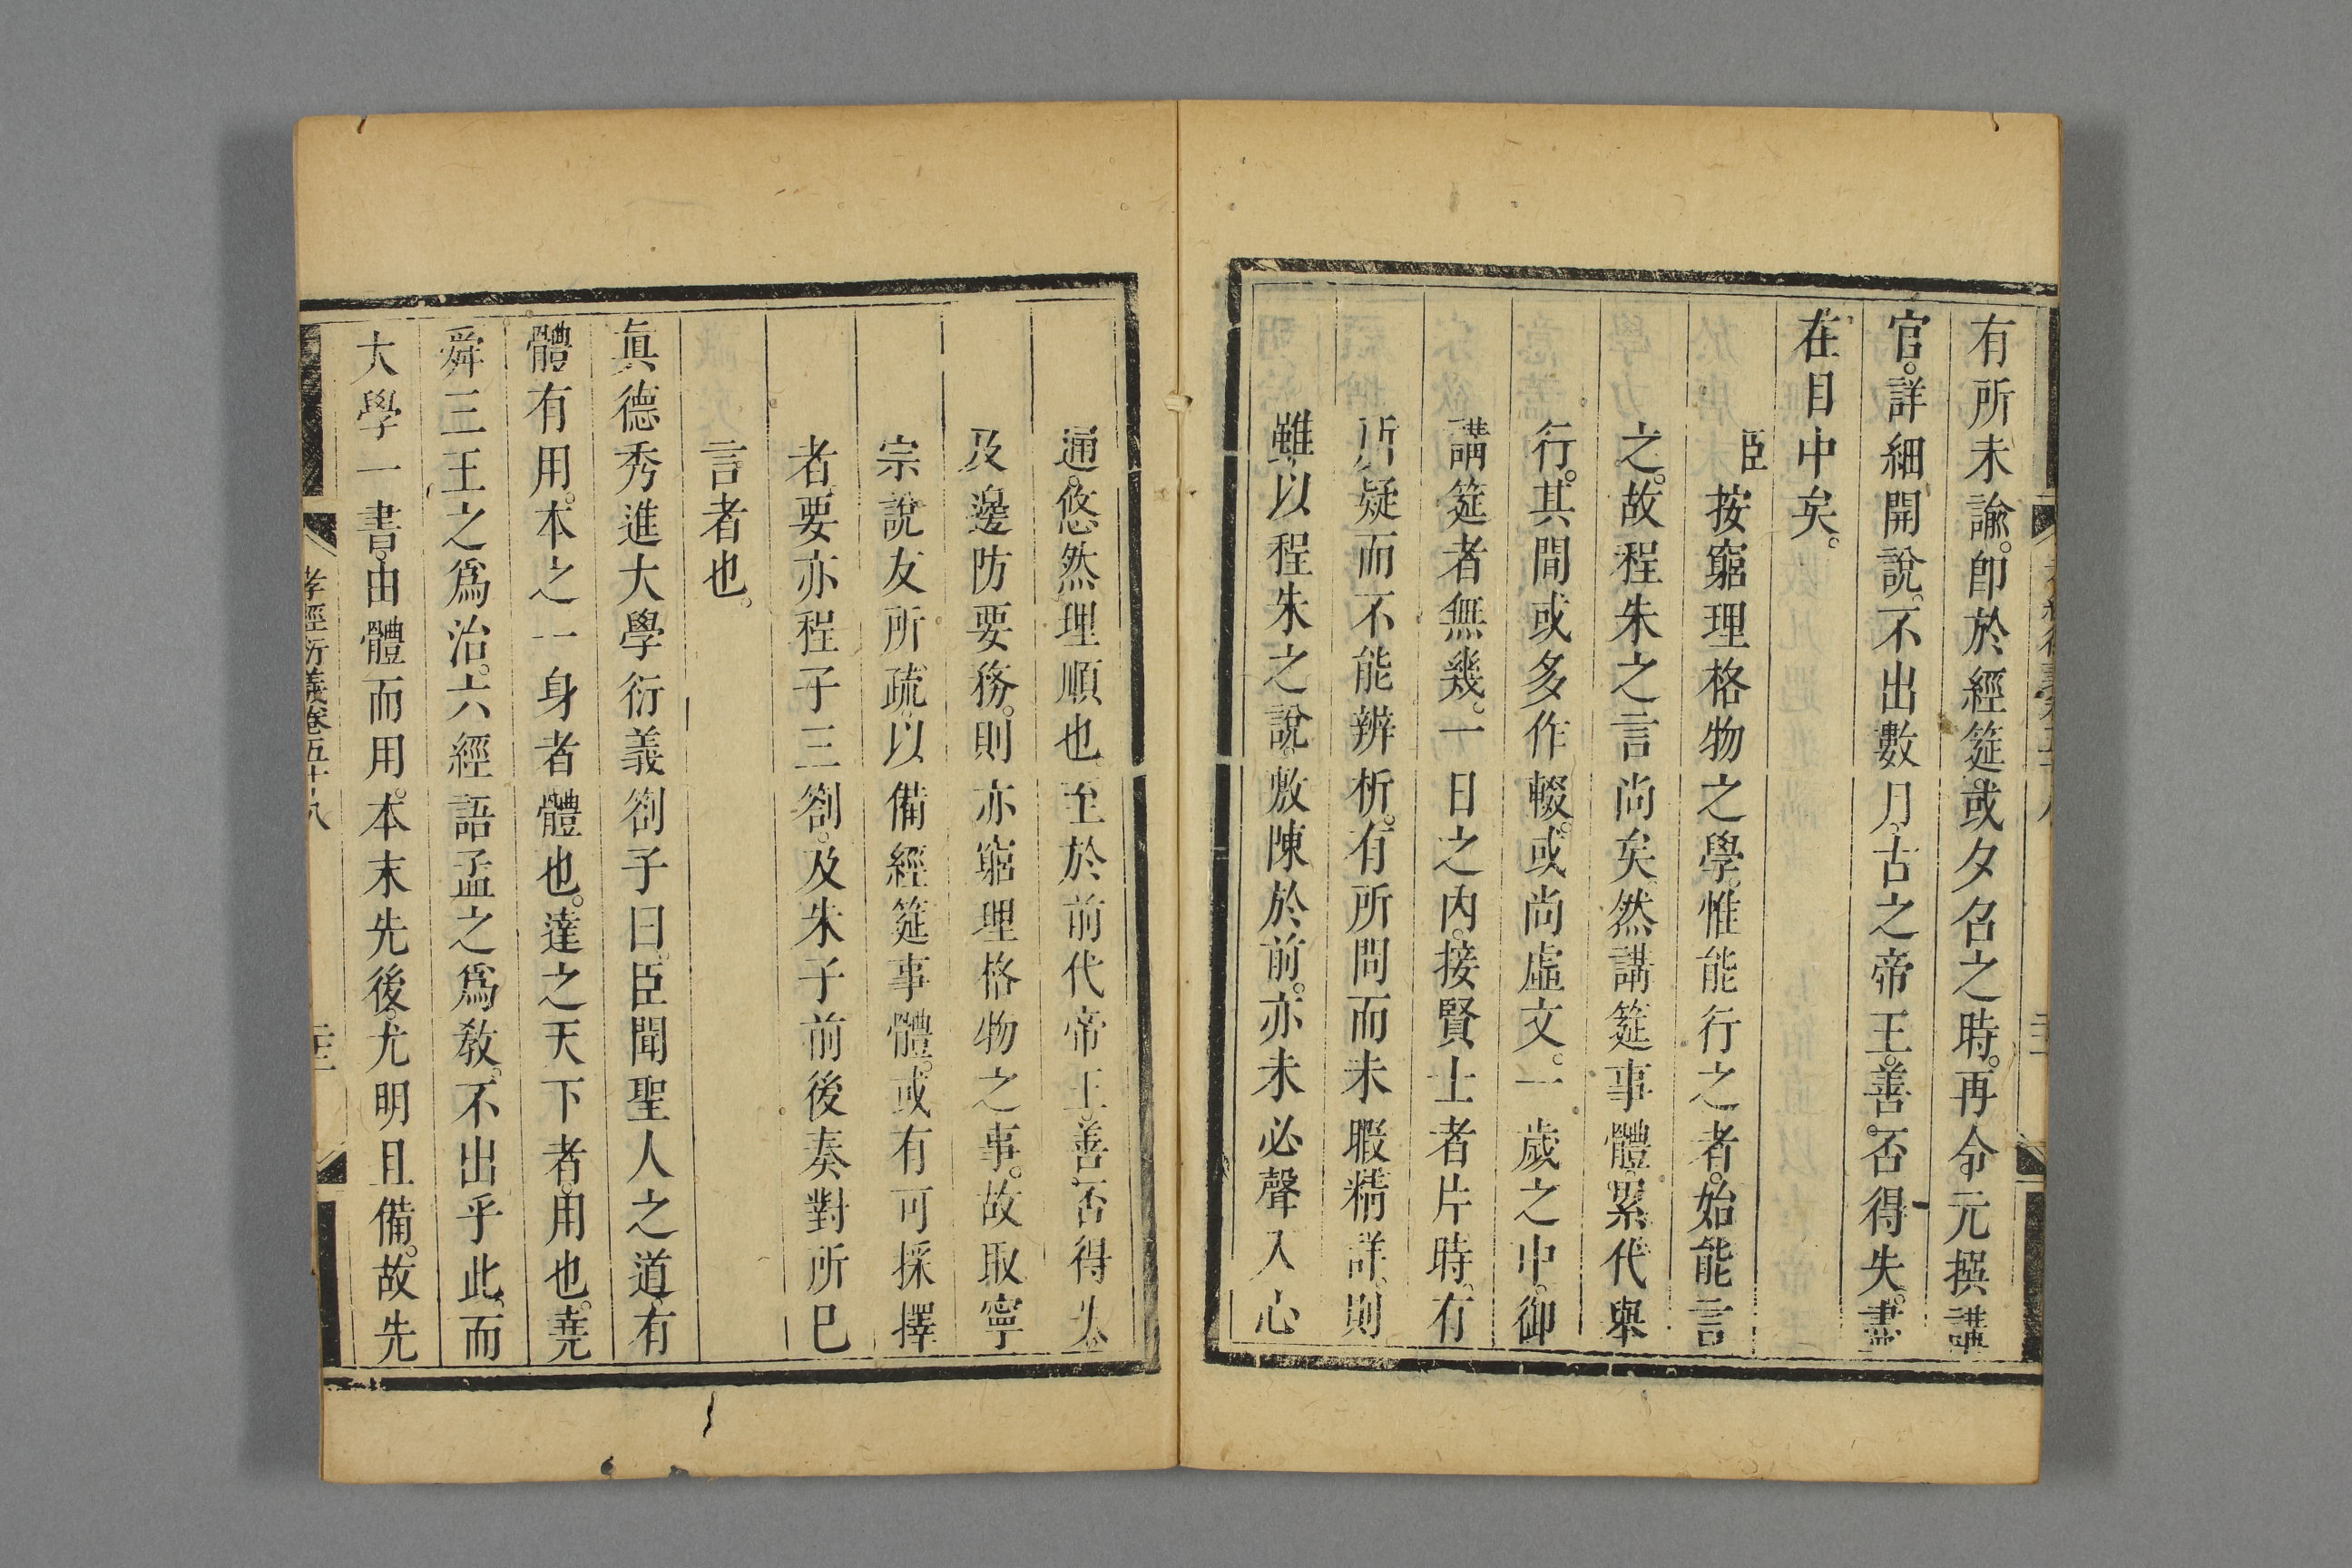 有所未諭。卽於經筵。或夕名之時。再令元撰講
官。詳細開說。不出數月。古之帝王。善。否得失。盡
在目中矣。
臣按窮理格物之學。惟能行之者。始能言
之。故程朱之言尚矣。然講筵事體。累代舉
行。其間或多作輟。或尚虛文。一歲之中。御
講筵者無幾。一日之內。接賢士者片時。有
所疑而不能辨析。有所問而未暇精詳。則
雖以程朱之說。敷陳於前。亦未必聲入心
通。悠然理順也。至於前代帝王。善否得失。
及邊防要務。則亦窮理格物之事。故取寧
宗說友所疏。以備經筵事體。或有可採擇
者。要亦程子三劄。及朱子前後奏對所巳
言者也。
眞德秀進大學衍義劄子曰。臣聞聖人之道。有
體有用。本之一身者體也。達之天下者。用也。堯
舜三王之爲治。六經語孟之爲敎。不出乎此。而
大學一書。由體而用。本末先後。尤明且備。故先
孝經衍義卷五十八